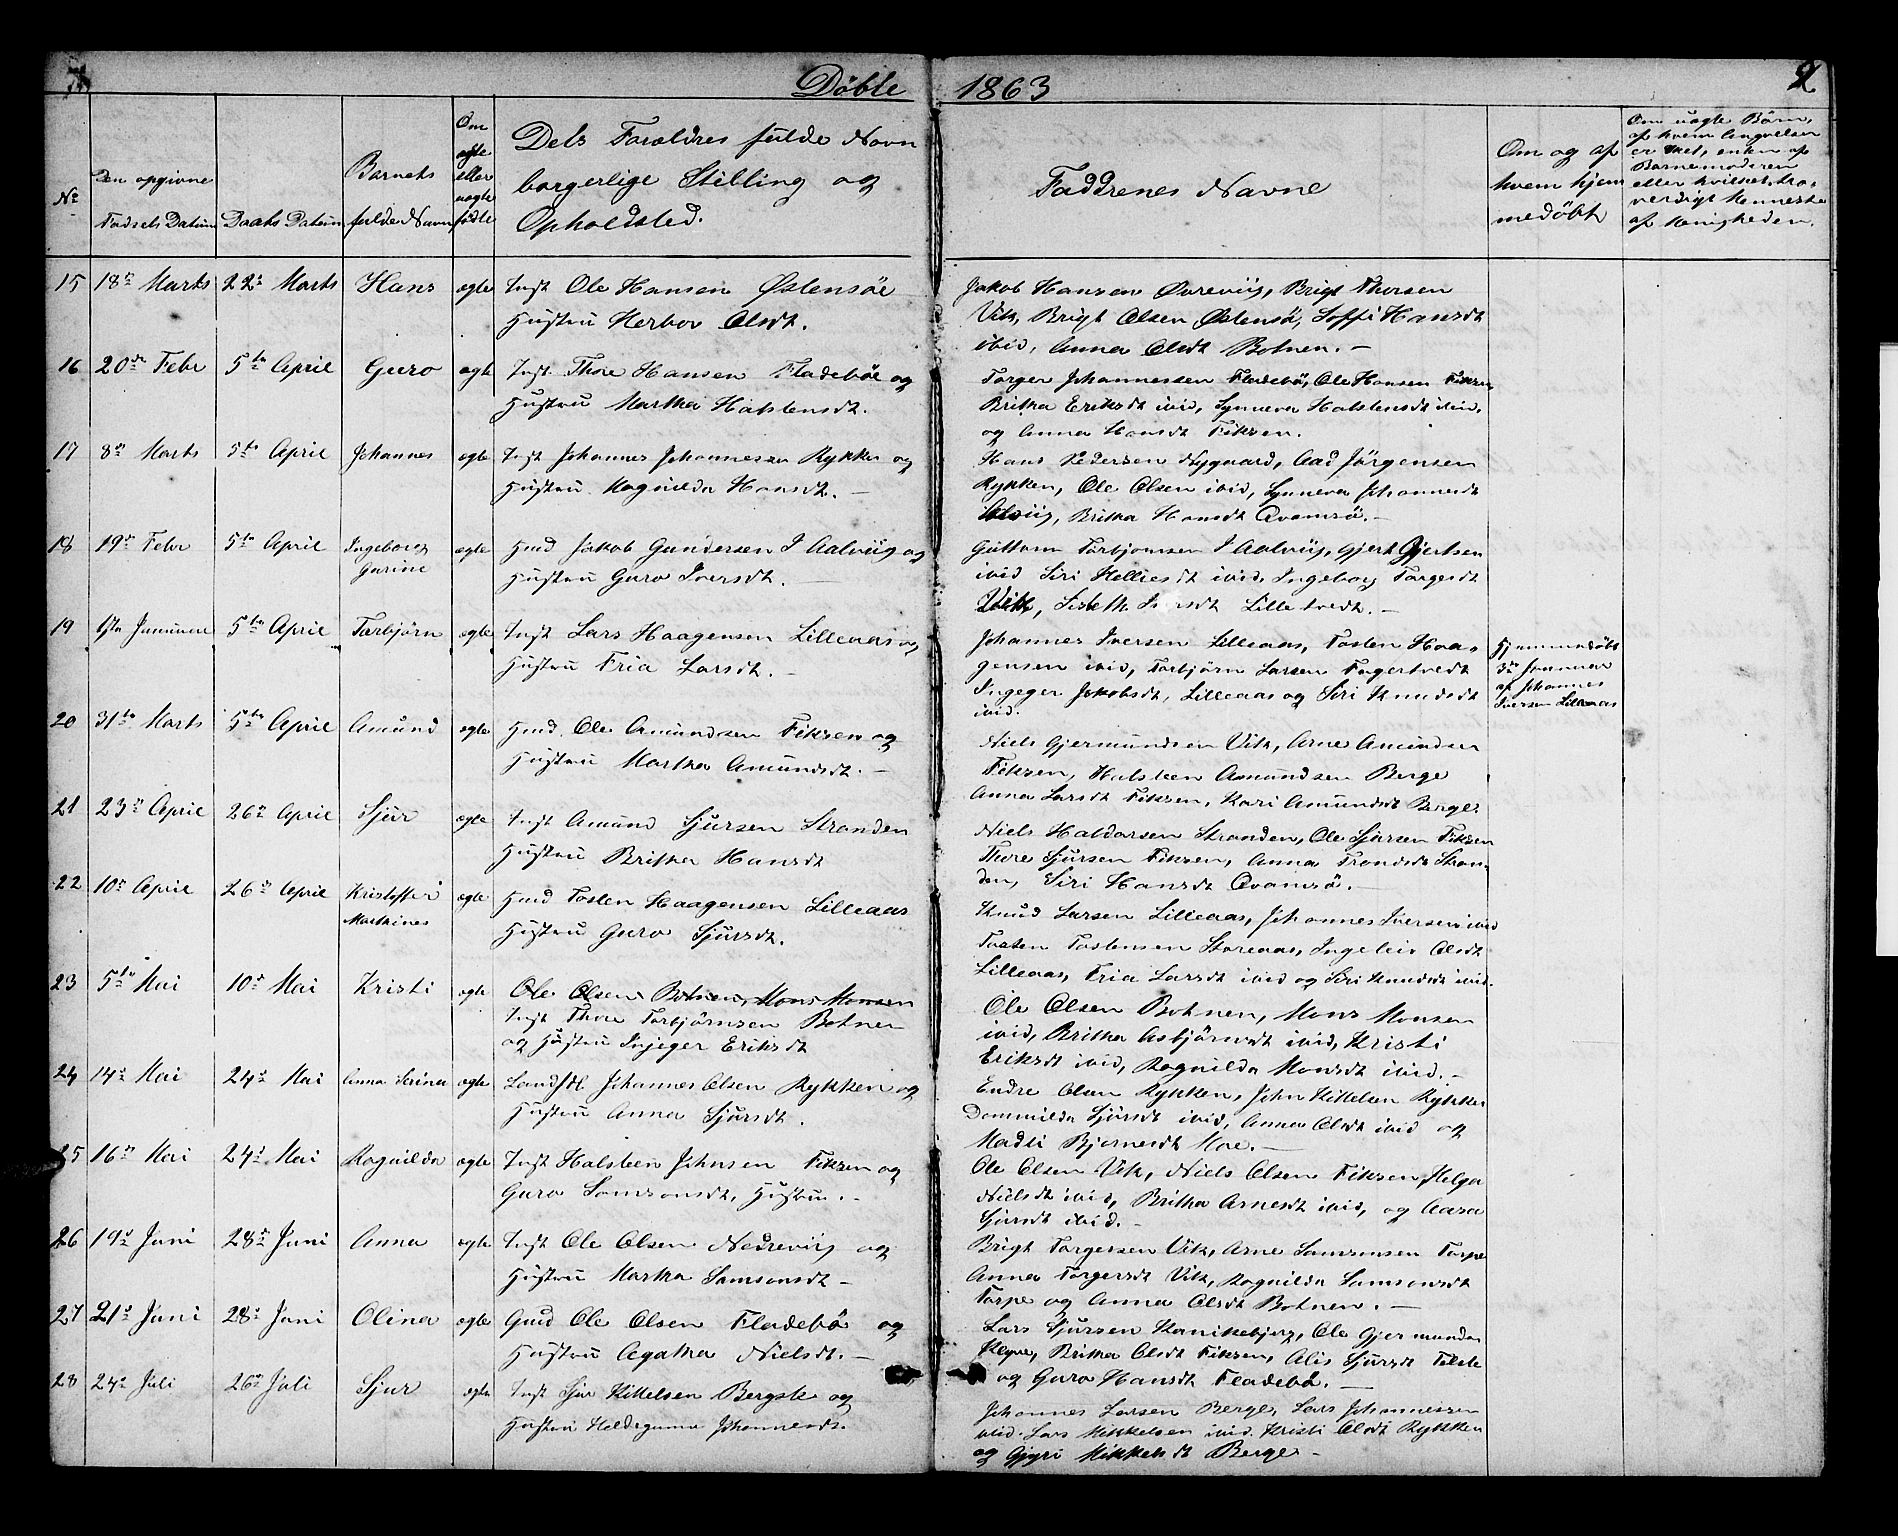 Döbte 1863 2
No
Den opgivne Fødsels Datum
Daabs Datum
Barnets fulde Navn
Om ægte eller uægte fødte
Dets Forældres fulde Navn
borgerlige Stilling og
Opholdsted.
Faddrenes Navne
Om og af
hvem hjem
medöbt
Om uægte Börn,
af hvem Angivelsen
er sket, enten af
Barnemoderen
eller hvilket tro-
verdigt Menneske
af Menigheden.
15 18de Marts 22de Marts Hans ægte Inst Ole Hansen Østensöe
Hustru Herbor Olsdt.
Jakob Hansen Øvreviig, Brigt Thorsen
Vik, Brigt Olsen Östensö, Soffi Hansdt
ibid, Anna Olsdt Botnen. —
16 20de Febr 5te April Guro ægte Inst. Thore Hansen Fladeböe og
Hustru Martha Halstensdt.
Torger Johannessen Fladebö, Ole Hansen Fiksen
Britha Eriksdt ibid, Synneva Halstensdt ibid,
og Anna Hansdt Fiksen.
17 8de Marts 5te April Johannes ægte Inst Johannes Johannessen Rykken og
Hustru Ragnilda Hansdt. —
Hans Pedersen Nygaard, Aad Jörgensen
Rykken, Ole Olsen ibid, Synneva Johannesdt
Britha Hansdt Qvamsö. —
18 19de Febr 5te April Ingeborg Gurine ægte Hmd Jakob Gundersen I Aalviig og
Hustru Guro Iversdt. —
Guttorm Torbjornsen I Aalviig, Gjert Gjertsen
ibid Siri Helliesdt ibid, Ingeborg Torgersdt
Vik, Sisbeth Iversdt Lilletvedt. —
19 1ste Januar 5te April Torbjörn ægte Inst Lars Haagensen Lilleaas og
Hustru Fria Larsdt. —
Johannes Iversen Lilleaas, Tosten Haa-
gensen ibid, Torbjörn Larsen Fagertvedt
Ingeger Jakobsdt, Lilleaas og Siri Knudsdt
ibid.
Hjemmedöbt
3de Januar
af Johannes
Iversen Lilleaas
20 31te Marts 5te April Amund ægte Hmd. Ole Amundsen Fiksen og
Hustru Martha Amundsdt. —
Niels Gjermundsen Vik, Arne Amundsen
Fiksen, Halsteen Amundsen Berge
Anna Larsdt Fiksen, Kari Amundsdt Berge.
21 23de April 26de April Sjur ægte Inst Amund Sjursen Stranden
Hustru Britha Hansdt
Niels Haldorsen Stranden, Ole Sjursen Fiksen
Thore Sjursen Fiksen, Anna Trondsdt Stran-
den, Siri Hansdt Qvamsö. —
22 10de April 26de April Kristoffer Mathines ægte Hmd Tosten Haagensen Lilleaas
Hustru Guro Sjursdt.
Knud Larsen Lilleaas, Johannes Iversen ibid
Tosten Tostensen Storeaas, Ingeleiv Olsdt
Lilleaas, Fria Larsdt ibid og Siri Knudsdt ibid.
23 5te Mai 10de Mai Kristi ægte Ole Olsen Botnen, Mons Monsen
Inst Thore Torbjörnsen Botnen
og Hustru Injeger Eriksdt
Ole Olsen Botnen, Mons Monsen
ibid, Britha Asbjörnsdt ibid, Kristi
Eriksdt ibid, Ragnilda Monsdt ibid. —
24 14de Mai 24de Mai Anna Serina ægte Landhdl. Johannes Olsen Rykken og
Hustru Anna Sjursdt.
Endre Olsen Rykken, John Kittelsen Rykken
Dommilda Sjursdt ibid, Anna Olsdt ibid og
Madli Bjornesdt Moe. —
25 16de Mai 24de Mai Ragnilda ægte Inst Halsteen Johnsen Fiksen og
Guro Samsonsdt, Hustru. —
Ole Olsen Vik, Niels Olsen Fiksen, Helga
Nielsdt ibid, Britha Arnesdt ibid, og Aasa
Sjursdt ibid. —
26 19de Juni 28de Juni Anna ægte Inst Ole Olsen Nedreviig og
Hustru Martha Samsonsdt —
Brigt Torgersen Vik, Arne Samsonsen Torpe
Anna Torgersdt Vik, Ragnilda Samsonsdt
Torpe og Anna Olsdt Botnen. —
27 21de Juni 28de Juni Olina ægte Gmd Ole Olsen Fladebö og
Hustru Agatha Nielsdt. —
Lars Sjursen Kanikebjerg, Ole Gjermunds
Britha Olsdt Fiksen, Alis Sjursdt
og Guro Hansdt Fladebö. —
28 24de Juli 26de Juli Sjur ægte Inst Sjur Kittelsen Bergste og
Hustru Heldegunna Johannesdt.
Johannes Larsen Berge, Lars Johannessen
ibid. Lars Mikkelsen ibid. Kristi Olsdt Rykken
og Gjyri Mikkelsdt Berge —